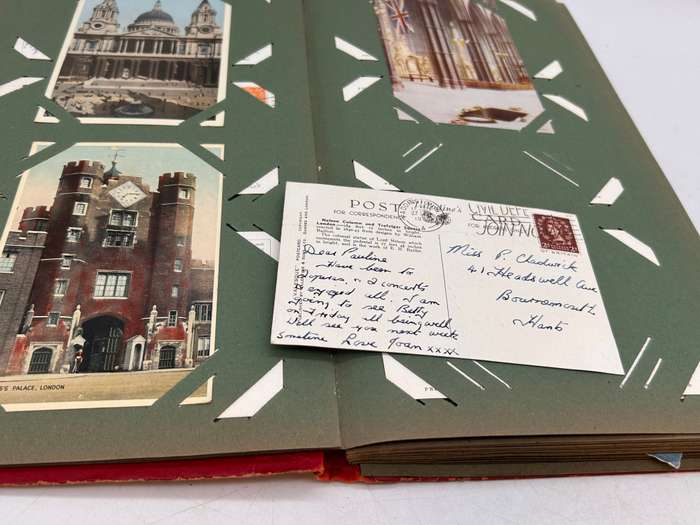 POST
FOR CORRESPONDENCE
Nelson Column and Trafalgar Square
London
Dear Pauline
Have been to
2 operas, & 2 concerts
enjoyed all. I am
going to see Betty
on Friday all being well
Will see you next week
Sometime Love Joan xxxx
CIVIL DEFE
CARE
JOIN NO
Miss P. Chadwick
41 Headswell Ave
Bournemouth
Hants
'S PALACE, LONDON